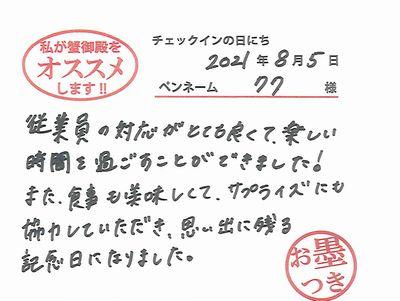 私が蟹御殿を
オススメ
します!!
チェックインの日にち
2021年8月5日
ペンネーム 77 様
従業員の対応がとても良くて、楽しい
時間を過ごすことができました!
また、食事も美味しくて、サプライズにも
協力していただき、思い出に残る
記念日になりました。
お墨
つき